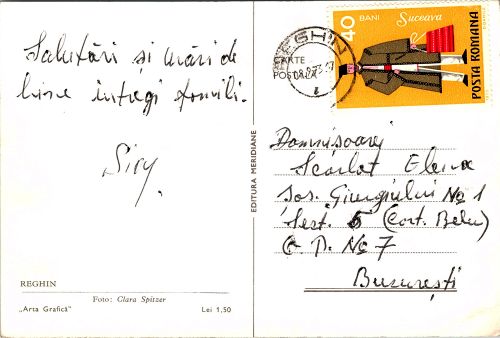 Salutări și urări de
bine întregi familii.
REGHIN
Foto: Clara Spitzer
„Arta Grafică" Lei 1,50
EDITURA MERIDIANE
REGHIN
CARTE
POSTALĂ
40 BANI Suceava
POSTA ROMANA
Domnișoarei
Scarlat Elena
Șos. Giurgiului No 1
Sect. 5 (Cart. Belu)
C. P. No 7
București